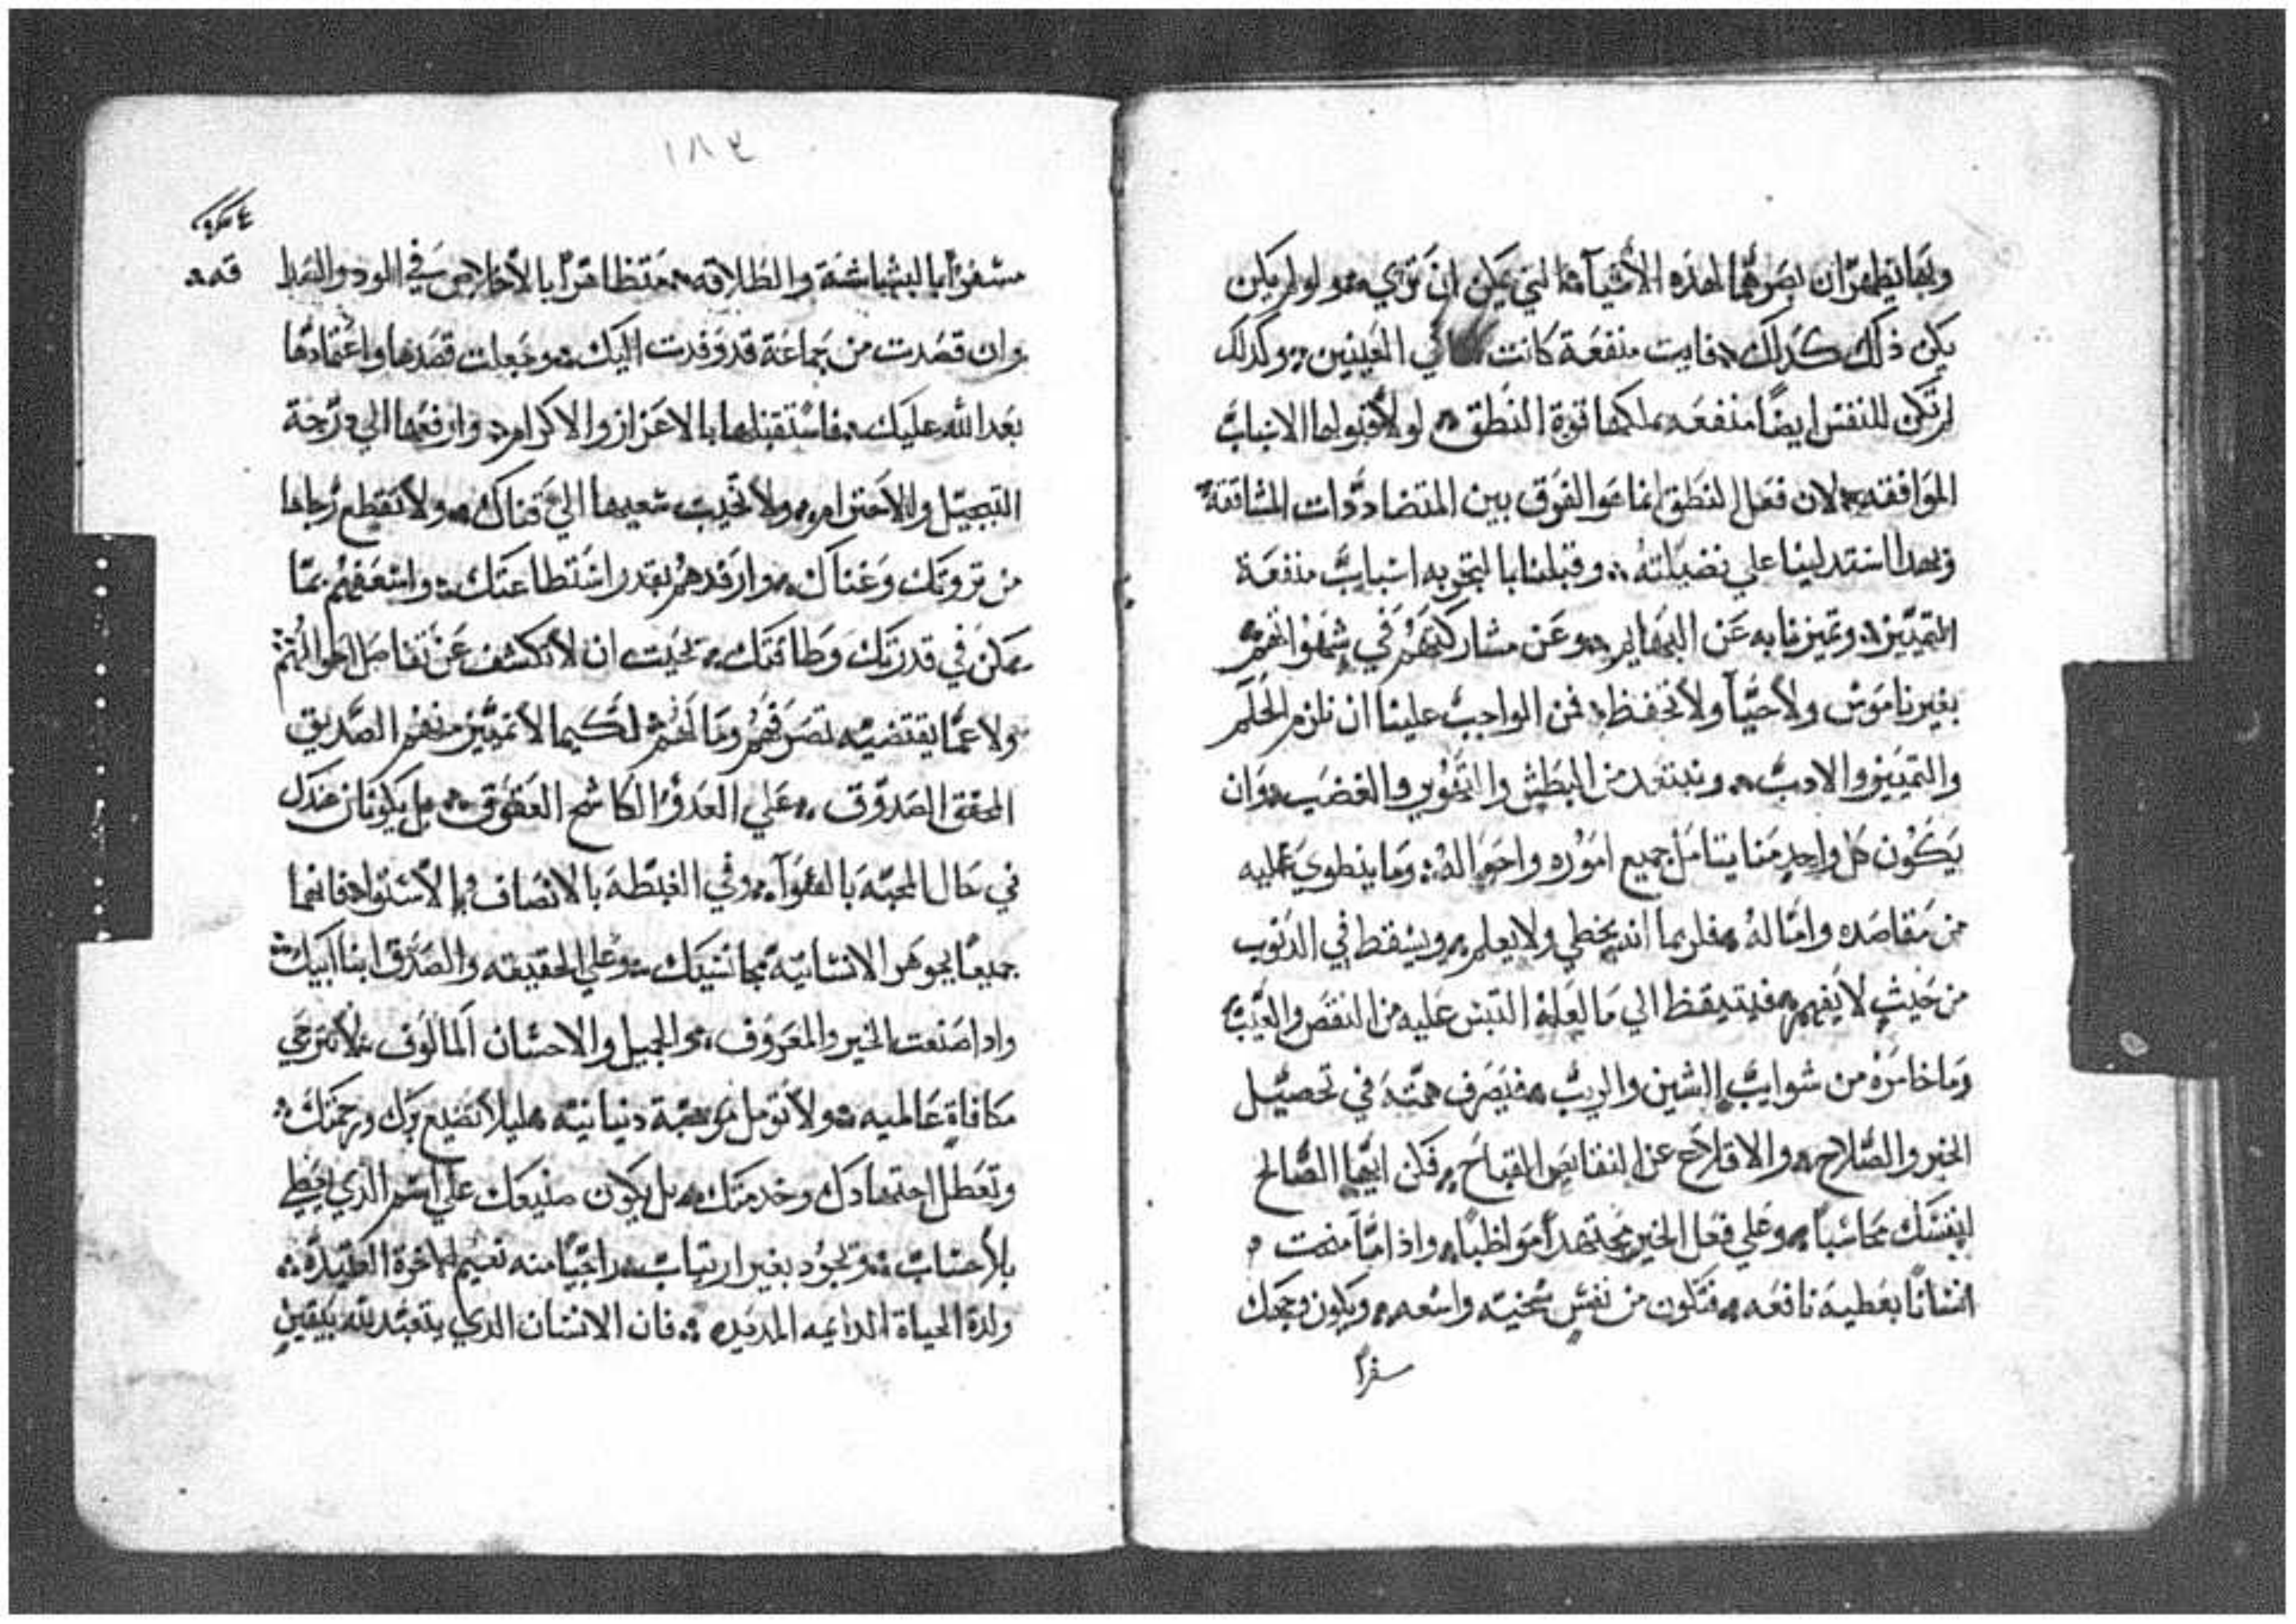 وبها يظهر ان بصرهما لهذه الأشيآء التي يمكن ان تري ولو لم يكن
يكن ذلك كذلك فايت منفعة كانت في العينين وكذلك
لم تكن للنفس ايضًا منفعه بملكها قوة النطق لولا قبولها الاسباب
الموافقه لان فعل النطق انما هو الفرق بين المتضاددات المشاققة
وبهذا استدلينا علي فضيلته وقبلنا بالتجربه اسباب منفعة
التمييز وتميزنا به عن البهايم وعن مشاركتهم في شهواتهم
بغير ناموس ولا حيآ ولا تحفظ فمن الواجب علينا ان نلزم الحلم
والتمييز والادب ونبتعد من البطش والتهور والغضب وان
يكون كل واحد منا يتامل جميع اموره واحواله وما ينطوي عليه
من مقاصده وامثاله فلربما انه يخطي ولا يعلم ويسقط في الذنوب
من حيث لا يفهم فيتيقظ الي ما لعله التبس عليه من النقص والعيب
وما خامره من شوايب الشين والريب فيصرف همته في تحصيل
الخير والصلاح والاقلاع عن النقايص القباح فكن ايها الصالح
لنفسك محاسبًا وعلي فعل الخير مجتهدًا مواظبًا واذا ما منحت
انسانًا بعطيه نافعه فتكون من نفس سخيه واسعه ويكون وجهك
سفرًا
١٨٣
قدمه
مسفرًا بالبشاشة والطلاقه متظاهرًا بالأخلاص في الود والصدا
وان قصدت من جماعة قد وفدت اليك وجعلت قصدها واعتمادها
بعد الله عليك فاستقبلها بالاعزاز والاكرام وارفعها الي درجة
التبجيل والاحترام ولا تخيب سعيها الي فناك ولا تقطع رجاها
من ثروتك وغناك وارفدهم بقدر استطاعتك واسعفهم بما
يمكن في قدرتك وطاقتك بحيث ان لا تكشف عن تفاصل احوالهم
ولا عما يقتضيه تصرفهم وما لهم لكيما لا تميز منهم الصديق
المحقق الصدوق علي العدو الكاشح العقوق بل يكونان عندك
في حال المحبه بالسوآء وفي الغبطه بالانصاف والاستوا فانهما
جميعًا بجوهر الانسانيه مجانسيك وعلي الحقيقه والصدق ابنا ابيك
واذا صنعت الخير والمعروف والجميل والاحسان المالوف فلا تترجي
مكافاة عالميه ولا تومل موهبة دنيانيه ليلا تضيع برك ورحمتك
وتعطل اجتهادك وخدمتك بل يكون صنيعك علي اسم الذي يعطي
بلا حساب وتجود بغير ارتياب راجيًا منه نعيم الاخرة العتيده
ولذة الحياة الدايمه المديده فان الانسان الذي يتعبد لله بيقين